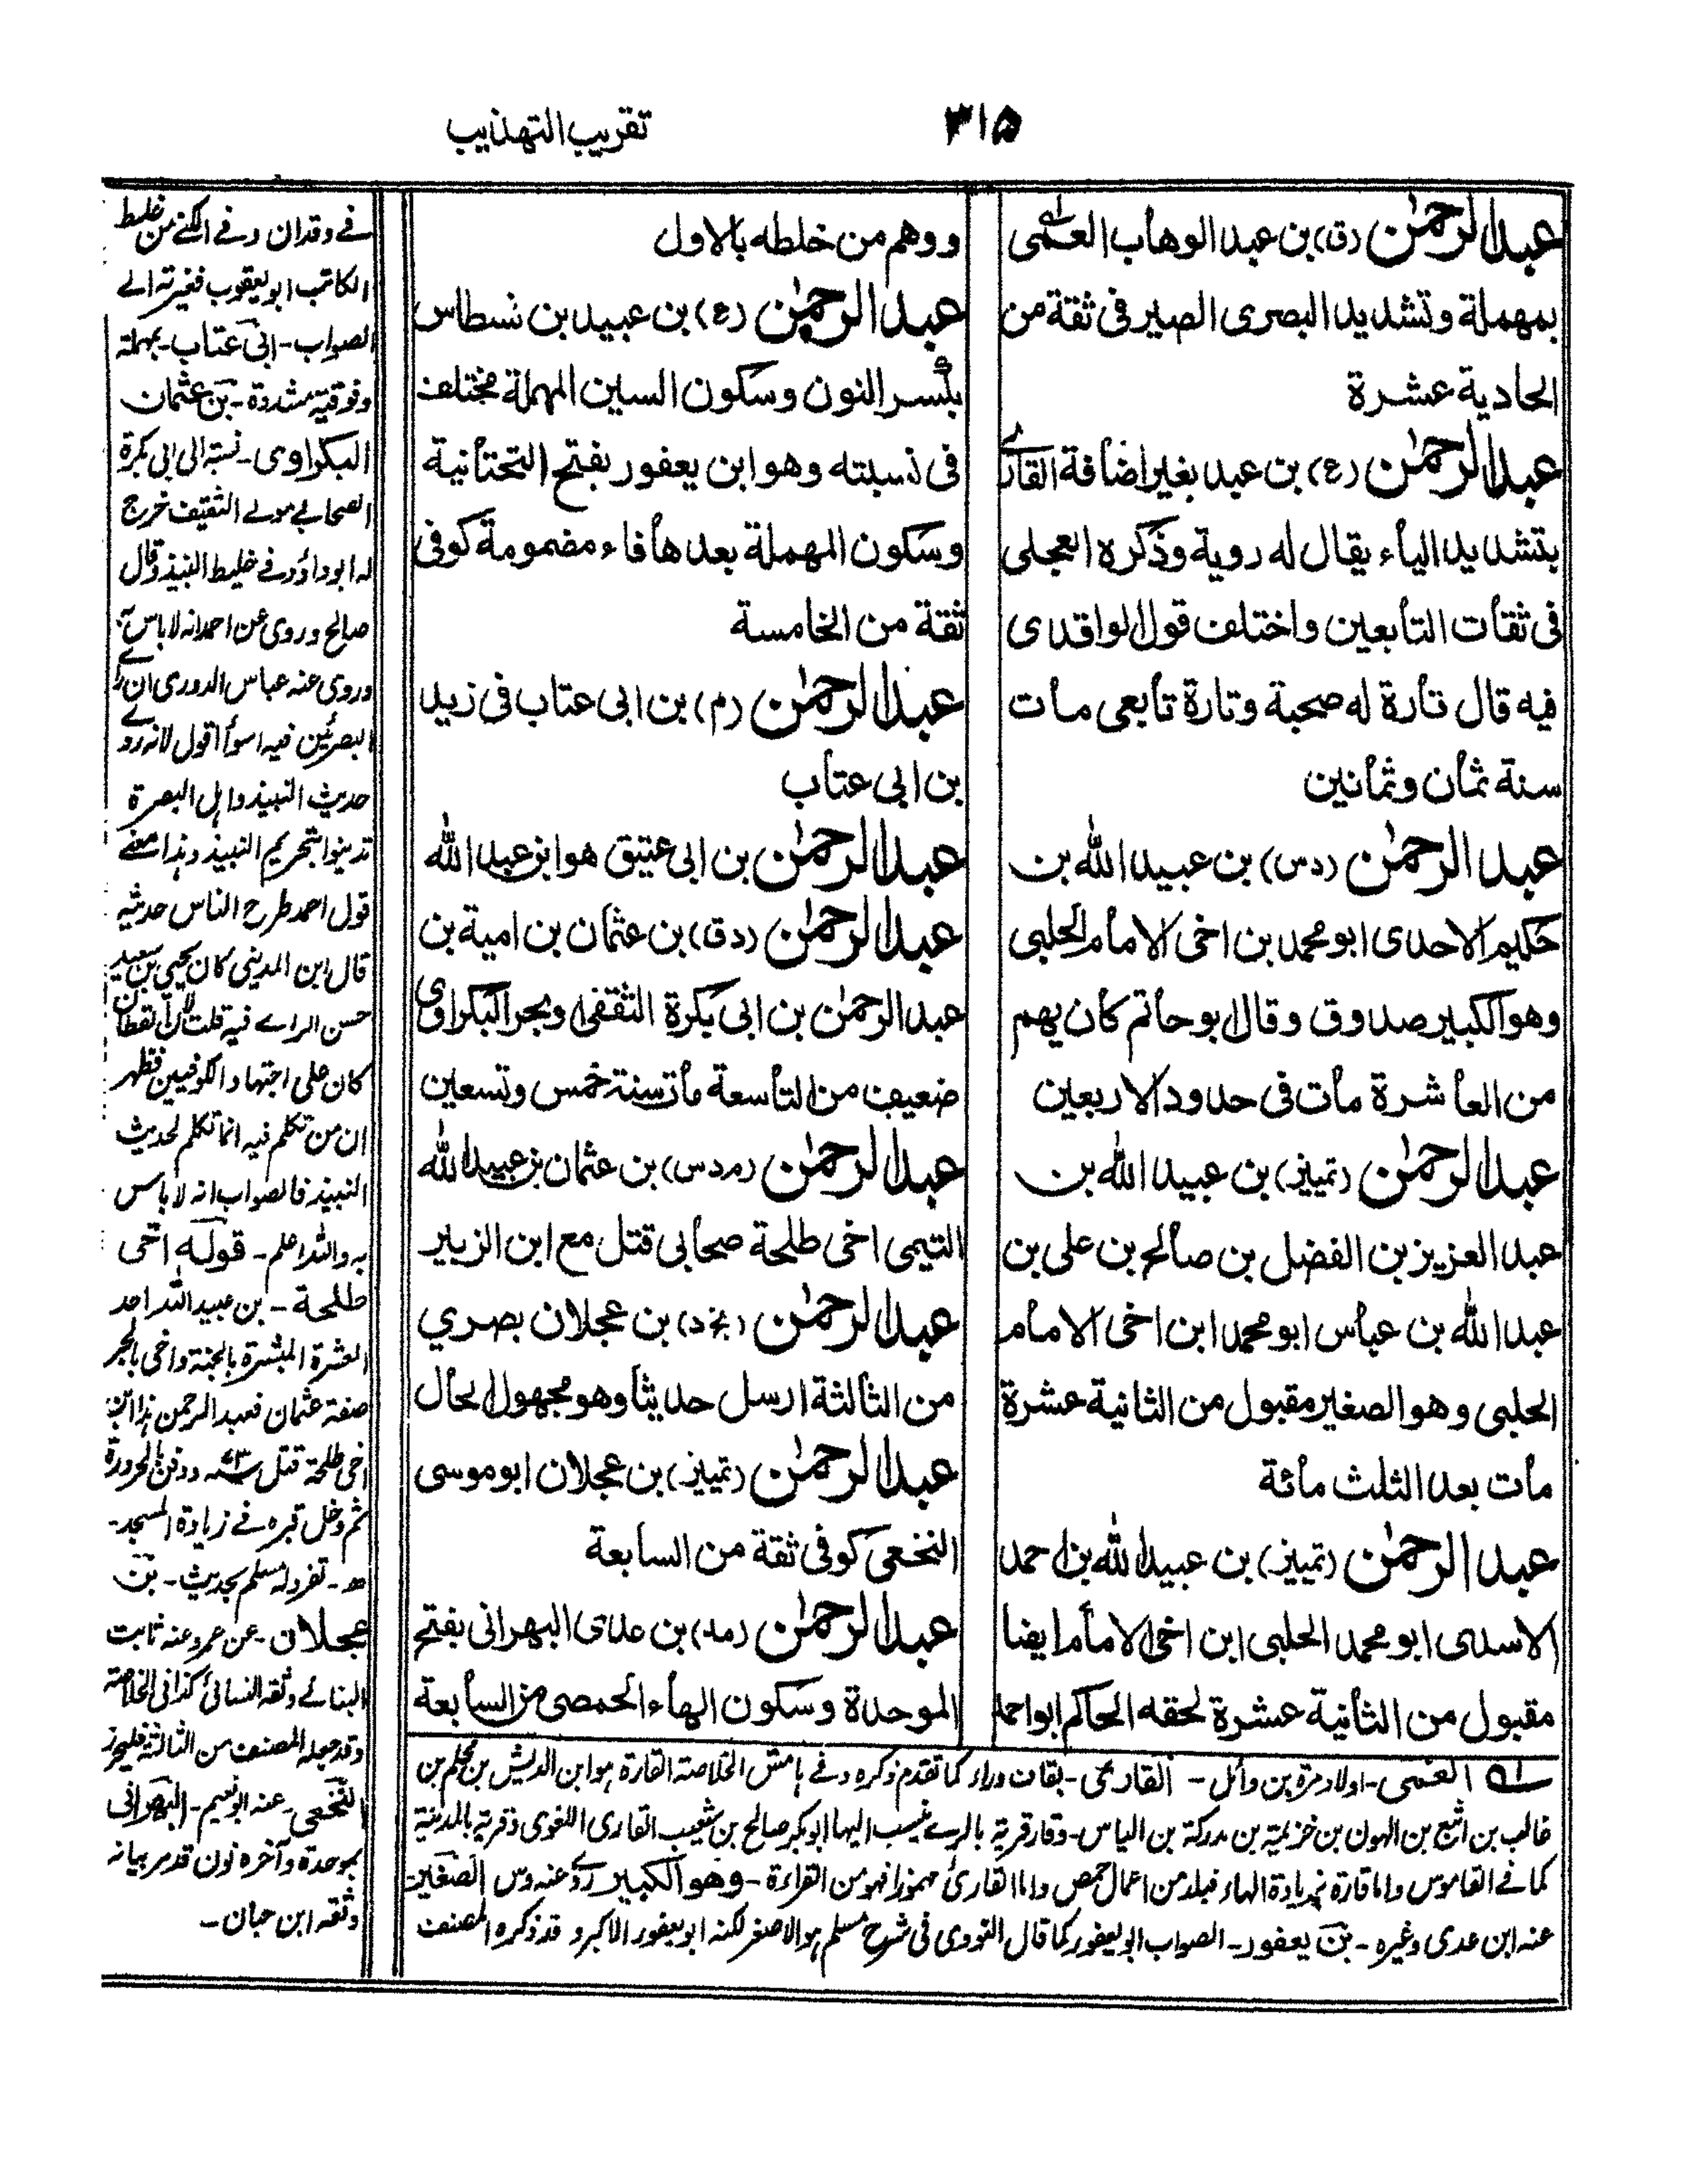 تقريب التهذيب
٣١٥
عبد الرحمٰن (ق) بن عبد الوهاب العمى
بمهملة وتشديد البصرى الصيرفى ثقة من
الحادية عشرة
عبد الرحمٰن (ع) بن عبد بغير اضافة القارى
بتشديد الياء يقال له روية وذكره العجلى
فى ثقات التابعين واختلف قول الواقدى
فيه قال تارة له صحبة وتارة تابعى مات
سنة ثمان وثمانين
عبد الرحمٰن (دس) بن عبيد الله بن
حكيم الاحدى ابو محمد بن اخى الامام الحلبى
وهو الكبير صدوق وقال ابو حاتم كان يهم
من العاشرة مات فى حدود الاربعين
عبد الرحمٰن (تمييز) بن عبيد الله بن
عبد العزيز بن الفضل بن صالح بن على بن
عبد الله بن عباس ابو محمد ابن اخى الامام
الحلبى وهو الصغير مقبول من الثانية عشرة
مات بعد الثلث مائة
عبد الرحمٰن (تمييز) بن عبيد الله بن احمد
الاسدى ابو محمد الحلبى ابن اخى الامام ايضا
مقبول من الثانية عشرة لحقه الحاكم ابو احمد
ووهم من خلطه بالاول
عبد الرحمٰن (ع) بن عبيد بن نسطاس
بكسر النون وسكون السين المهملة مختلف
فى نسبته وهو ابن يعفور بفتح التحتانية
وسكون المهملة بعدها فاء مضمومة كوفى
ثقة من الخامسة
عبد الرحمٰن (م) بن ابى عتاب فى زيد
بن ابى عتاب
عبد الرحمٰن بن ابى عتيق هو ابن عبد الله
عبد الرحمٰن (دق) بن عثمان بن امية بن
عبد الرحمٰن بن ابى بكرة الثقفى ابو بحر البكراوى
ضعيف من التاسعة مات سنة خمس وتسعين
عبد الرحمٰن (مدس) بن عثمان بن عبيد الله
التيمى اخى طلحة صحابى قتل مع ابن الزبير
عبد الرحمٰن (بخد) بن عجلان بصري
من الثالثة ارسل حديثا وهو مجهول الحال
عبد الرحمٰن (تمييز) بن عجلان ابو موسى
النخعى كوفى ثقة من السابعة
عبد الرحمٰن (مد) بن عدى البهرانى بفتح
الموحدة وسكون الهاء الحمصى من السابعة
له العمى - اولاد مرة بن وائل - القارى - بقاف وراء كما تقدم ذكره وفى هامش الخلاصة القارة هو ابن الديش بن محلم بن
غالب بن اثيع بن الهون بن خزيمة بن مدركة بن الياس - وقار قرية بالرے ينسب اليها ابو بكر صالح بن شعيب القارى اللغوى وقرية بالمدينة
كما فى القاموس واما قارة بزيادة الهاء فبلد من اعمال حمص واما القارئ مهموزا فهو من القراءة - وهو الكبير روى عنه دس الصغير
عنه ابن عدى وغيره - بن يعفور - الصواب ابو يعفور كما قال النووى فى شرح مسلم هو الاصغر لكنه ابو يعفور الاكبر و قد ذكره المصنف
فے وقدان وفے الكنے من غليط
الكاتب ابو يعقوب فغيرته الے
الصواب - ابى عتاب - بمهملة
وفوقية مشددة - بن عثمان
البكراوى - نسبة الى ابى بكرة
الصحابے مولے الثقيف خرج
له ابو داؤد فے خليط النبيذ وقال
صالح وروى عن احمد انه لا باس به
وروى عنه عباس الدورى ان رائے
البصرئين فيه اسوأ اقول لانه روى
حديث النبيذ واہل البصرة
تدينوا بتحريم النبيذ وهذا معنے
قول احمد طرح الناس حديثه
قال ابن المدينى كان يحيى بن سعيد
حسن الراے فيه قلت لان القطان
كان على اجتهاد الكوفيين فظهر
ان من تكلم فيه انما تكلم لحديث
النبيذ فالصواب انه لا باس
به والله اعلم - قوله اخى
طلحة - بن عبيد الله احد
العشرة المبشرة بالجنة واخى بالجر
صفة عثمان فعبد الرحمن هذا ابن
اخى طلحة قتل سنه ٧٣ ودفن بالحزورة
ثم دخل قبره فے زيادة المسجد -
ھ - تفرد له مسلم بحديث - بن
عجلان - عن عمر وعنه ثابت
البنانے وثقه النسائى كذا فى الخلاصة
وقد جعله المصنف من الثالثة فليحرر
النخعى - عنه ابو نعيم - البهرانى
بموحدة وآخره نون قد مر بيانه
وثقه ابن حبان -